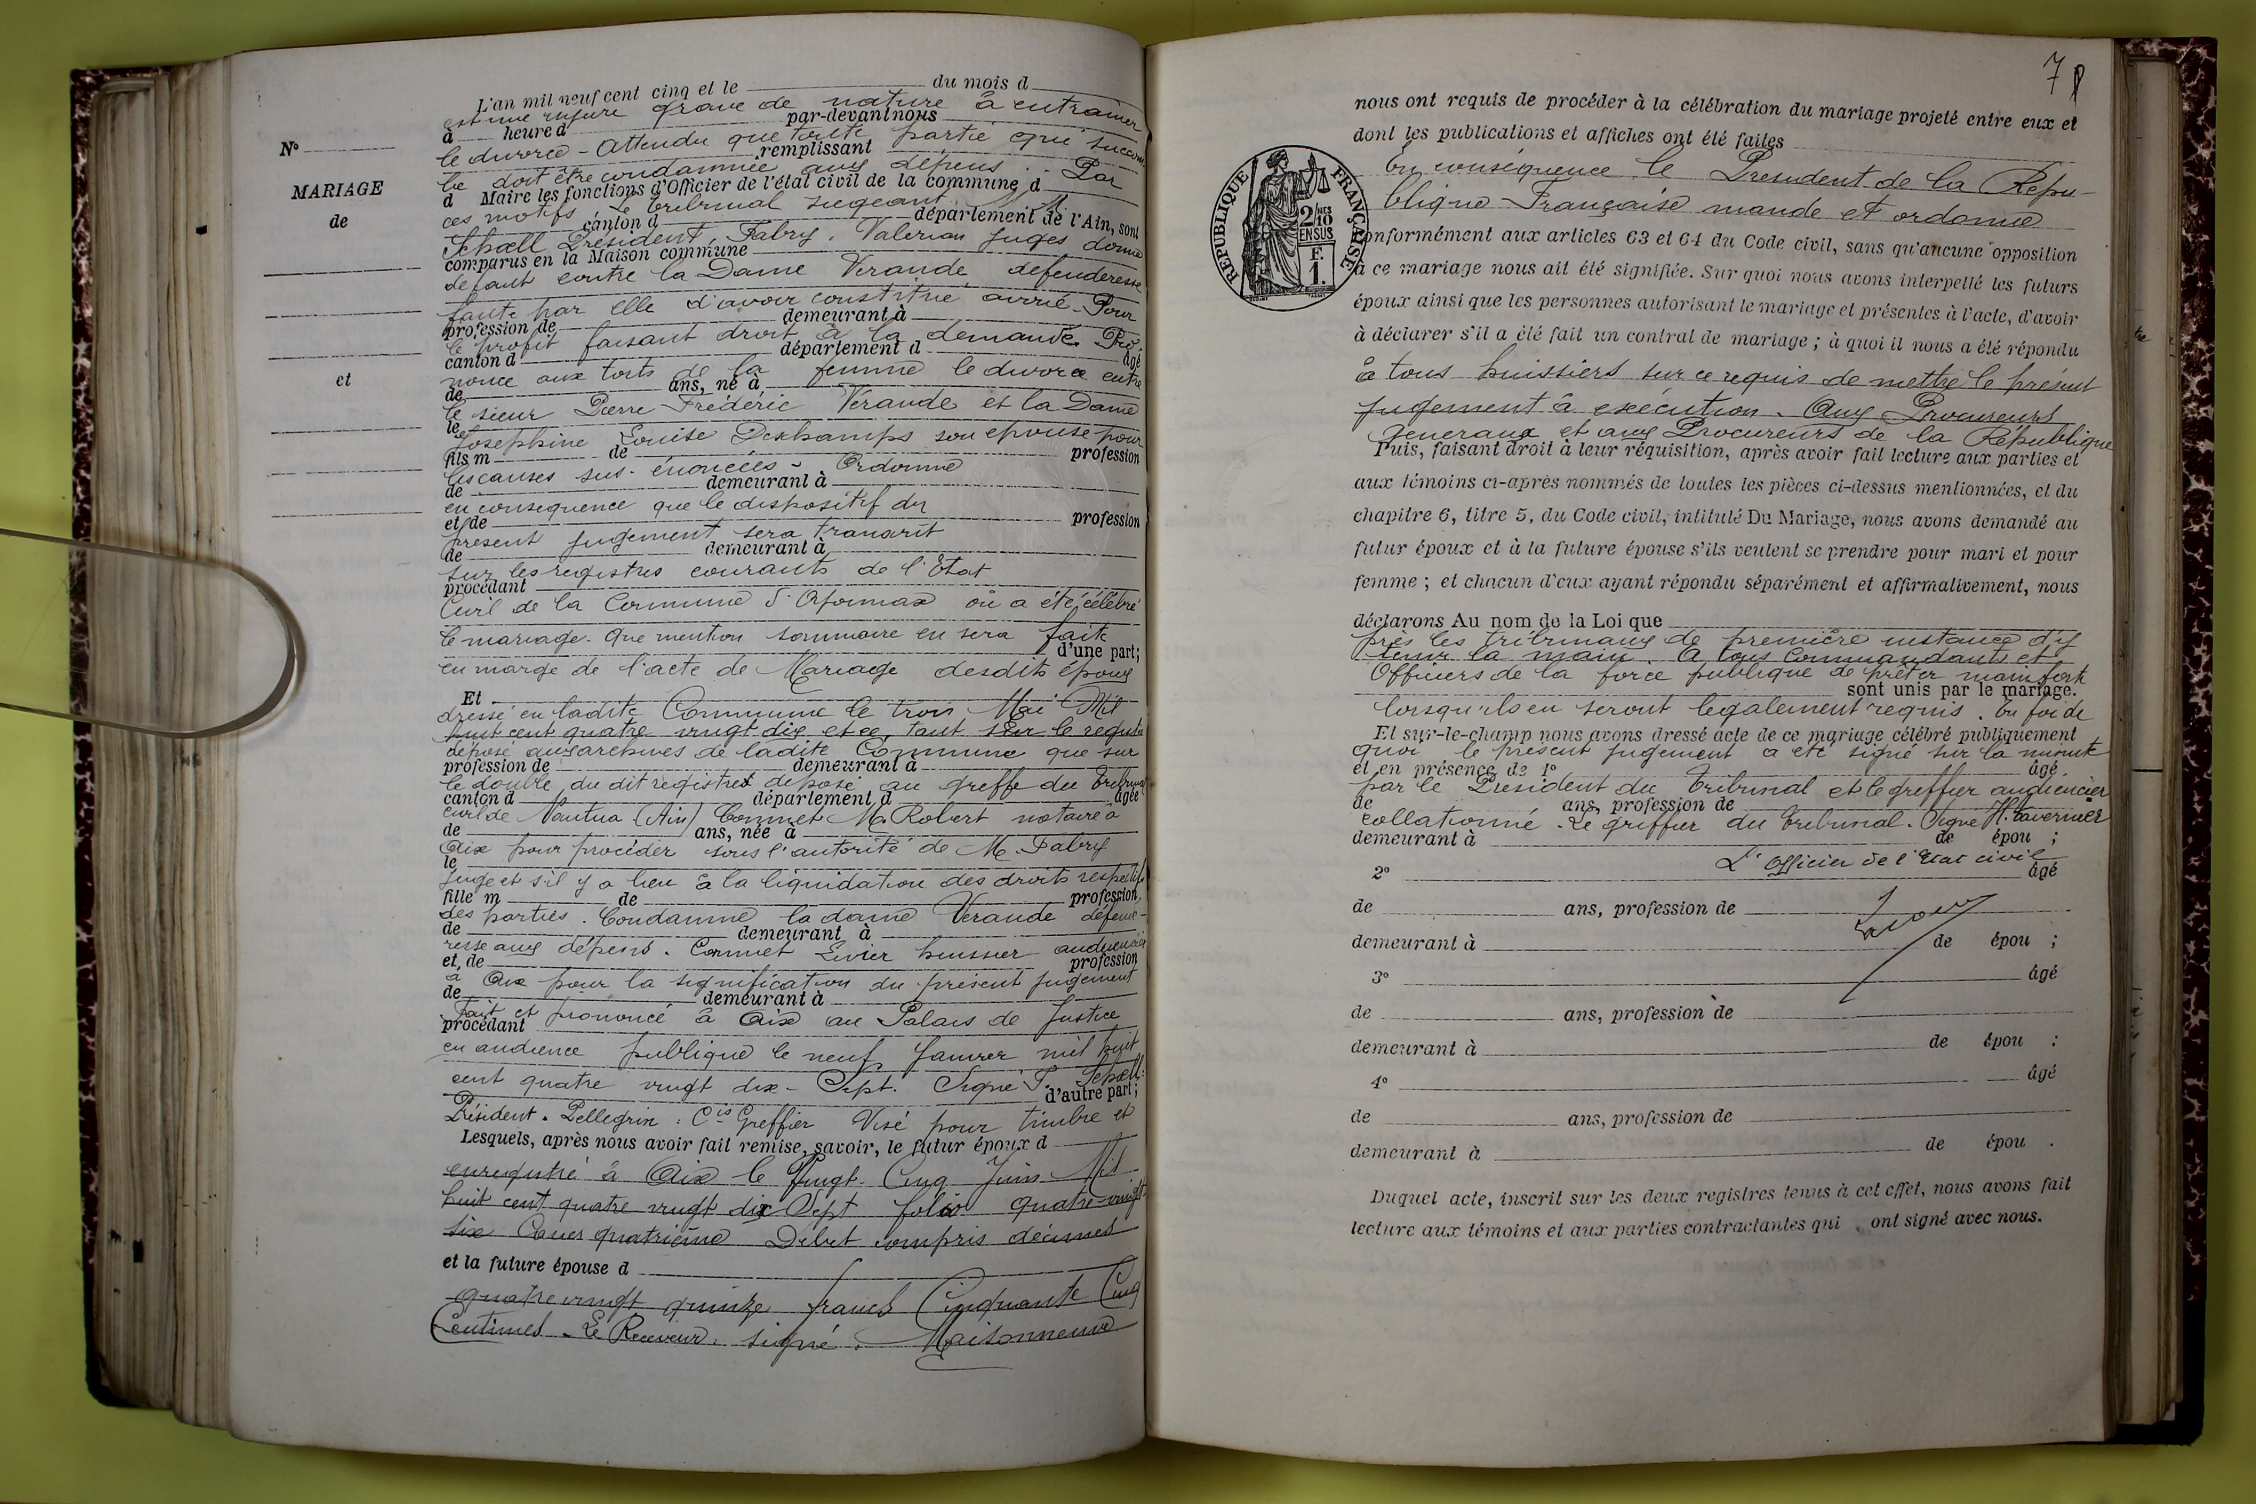 L'an mil neuf cent cinq et le du mois d
est une injure grave de nature à entrainer
à heure d par-devant nous
le divorce - Attendu que toute partie qui succom
remplissant
be doit être condamnée aux dépens. Par
d Maire les fonctions d'Officier de l'état civil de la commune d
ces motifs Le tribunal siegeant M.M.
canton d département de l'Ain, sont
Schœll Président, Fabry, Valerian juges donne
comparus en la Maison commune
defaut contre la Dame Verande defenderesse
faute par elle d'avoir constitué avoué - Pour
profession de demeurant à
le profit faisant droit à la demande Pro
canton d département d âgé
nonce aux torts de la femme le divorce entre
de ans, né à
le sieur Pierre Frédéric Verande et la Dame
le
Josephine Louise Deschamps son epouse pour
fils m de profession
les causes sus-énoncées - Ordonne
de demeurant à
en consequence que le dispositif du
et de profession
présent jugement sera transcrit
de demeurant à
sur les registres courants de l'Etat
procédant
Civil de la Commune d'Oyonnax où a été célébré
le mariage. Que mention sommaire en sera faite
d'une part;
en marge de l'acte de Mariage desdits époux
Et
dressé en ladite Commune le trois Mai Mil
huit cent quatre vingt dix et ce, tant sur le registre
déposé aux archives de ladite Commune que sur
profession de demeurant à
le double du dit registre déposé au greffe du Tribunal
canton d département d âgée
civil de Nantua (Ain) Commet Me Robert notaire à
de ans, née à
Aix pour procéder sous l'autorité de M. Fabry
le
Juge et s'il y a lieu à la liquidation des droits respectifs
fille m de profession
des parties. Condamne la dame Verande défende-
de demeurant à
resse aux dépens. Commet Livier huissier audiencier
et, de profession
à Aix pour la signification du présent jugement
de demeurant à
Fait et prononcé à Aix au Palais de Justice
procédant
en audience publique le neuf Janvier mil huit
cent quatre vingt dix-Sept. Signé Schœll
d'autre part;
Président. Pellegrin: Cis Greffier Visé pour timbre et
Lesquels, après nous avoir fait remise, savoir, le futur époux d
enregistré à Aix le Vingt-Cinq Juin Mil
huit cent quatre vingt dix Sept folio quatre-vingt
six Case quatrième Débet compris décimes
et la future épouse d
quatre vingt quinze francs Cinquante Cinq
Centimes - Le Receveur, signé. Maisonneuve
N°
MARIAGE
de
et
7
nous ont requis de procéder à la célébration du mariage projeté entre eux et
dont les publications et affiches ont été faites
En conséquence le President de la Répu-
blique Française mande et ordonne
RÉPUBLIQUE FRANÇAISE
2/10 EN SUS
1 F.
conformément aux articles 63 et 64 du Code civil, sans qu'aucune opposition
à ce mariage nous ait été signifiée. Sur quoi nous avons interpellé les futurs
époux ainsi que les personnes autorisant le mariage et présentes à l'acte, d'avoir
à déclarer s'il a été fait un contrat de mariage ; à quoi il nous a été répondu
à tous huissiers sur ce requis de mettre le présent
jugement à exécution. Aux Procureurs
generaux et aux Procureurs de la République
Puis, faisant droit à leur réquisition, après avoir fait lecture aux parties et
aux témoins ci-après nommés de toutes les pièces ci-dessus mentionnées, et du
chapitre 6, titre 5, du Code civil, intitulé Du Mariage, nous avons demandé au
futur époux et à la future épouse s'ils veulent se prendre pour mari et pour
femme ; et chacun d'eux ayant répondu séparément et affirmativement, nous
déclarons Au nom de la Loi que
près les tribunaux de première instance d'y
tenir la main. A tous Commandants et
Officiers de la force publique de prêter main forte
sont unis par le mariage.
lorsqu'ils en seront légalement requis. En foi de
Et sur-le-champ nous avons dressé acte de ce mariage célébré publiquement
quoi le présent jugement a été signé sur la minute
et en présence de 1° âgé
par le Président du Tribunal et le greffier audiencier
de ans, profession de
collationné. Le greffier du tribunal. Signé H. Tavernier
demeurant à de épou ;
L'Officier de l'Etat civil
2° âgé
de ans, profession de
demeurant à de épou ;
3° âgé
de ans, profession de
demeurant à de épou :
4° âgé
de ans, profession de
demeurant à de épou .
Duquel acte, inscrit sur les deux registres tenus à cet effet, nous avons fait
lecture aux témoins et aux parties contractantes qui ont signé avec nous.